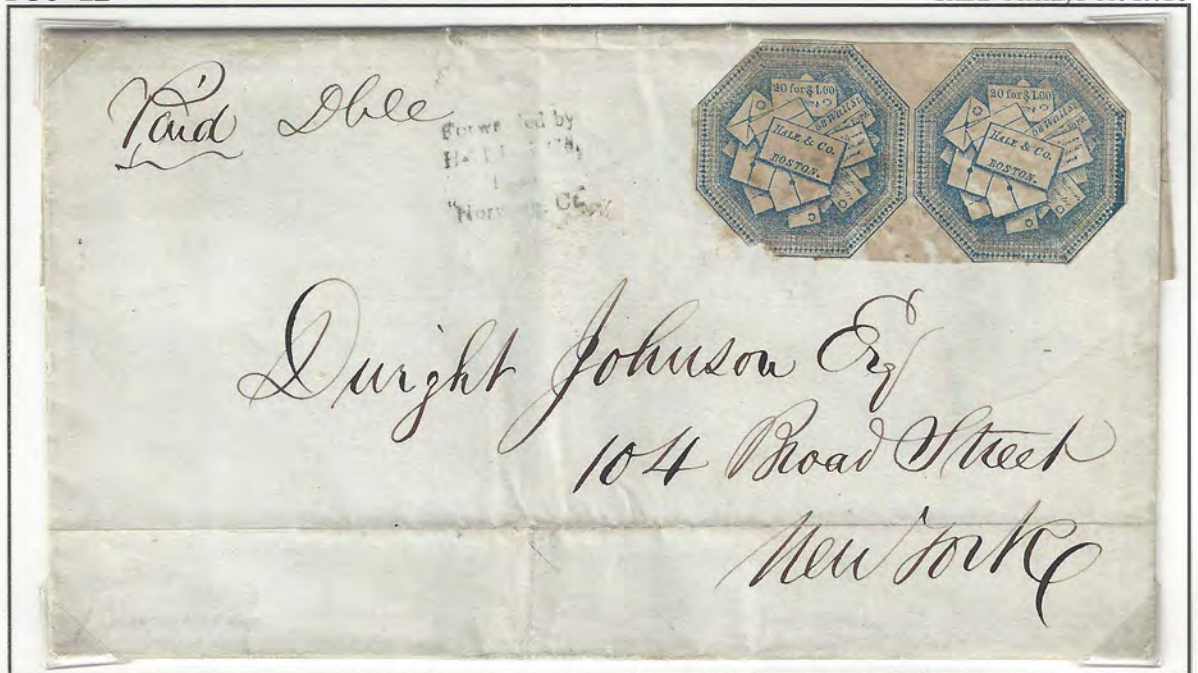 Paid Dble
Forwarded by
"Norwich, Ct."
20 for $1.00
HALE & Co.
BOSTON.
20 for $1.00
HALE & Co.
BOSTON.
Dwight Johnson Esq
104 Broad Street
New York